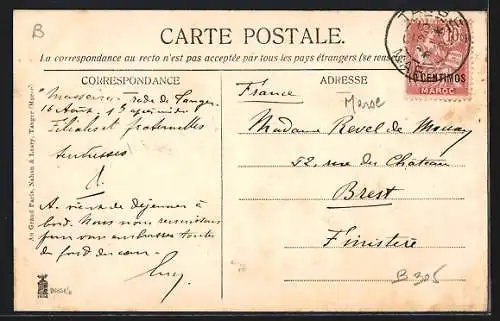 B
CARTE POSTALE.
La correspondance au recto n'est pas acceptée par tous les pays étrangers (se rens
CORRESPONDANCE
ADRESSE
TANGER
10
10 CENTIMOS
MAROC
rade de Tanger
16 Août,
Filiales et fraternelles
tendresses
A. vient de déjeuner à
bord. Nous nous
pour vous embrasser toutes
du fond du cœur.
Lucy
France
Maroc
Madame Revel de
52, rue du Château
Brest
Finistère
B 305
Au Grand Paris, Nahon & Lasry, Tanger (Maroc)